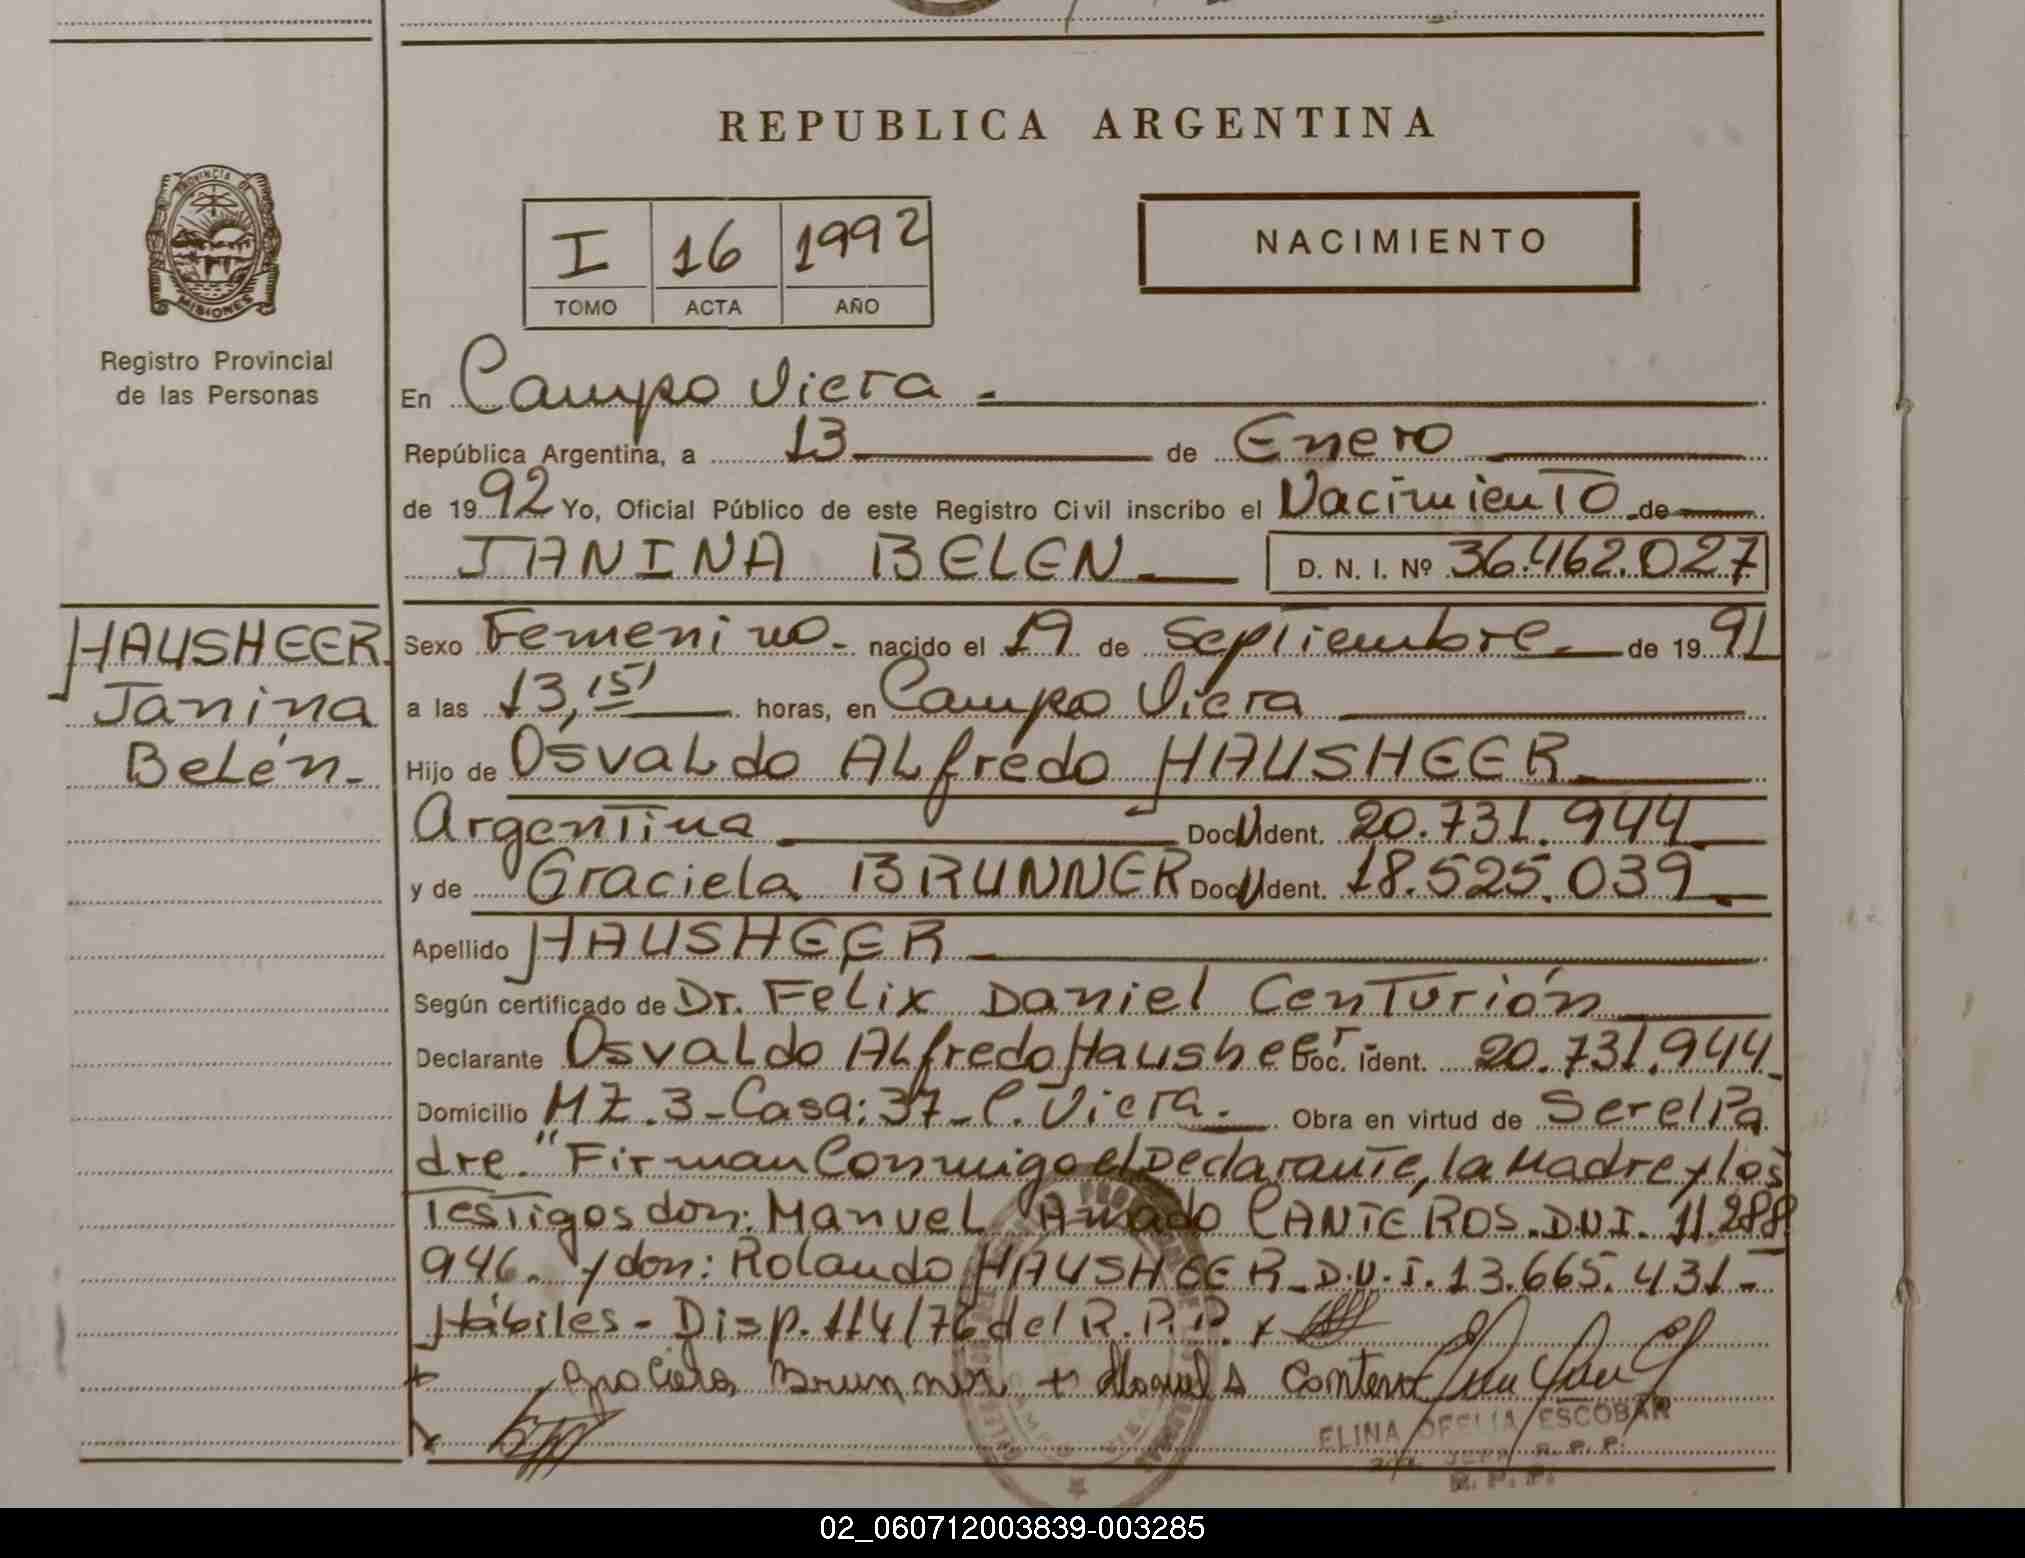 REPUBLICA ARGENTINA
PROVINCIA DE MISIONES
Registro Provincial
de las Personas
I 16 1992
TOMO ACTA AÑO
NACIMIENTO
En Campo Viera -
República Argentina, a 13 de Enero
de 1992 Yo, Oficial Público de este Registro Civil inscribo el Nacimiento de
JANINA BELEN D. N. I. Nº 36.462.027
HAUSHEER
Janina
Belén-
Sexo Femenino- nacido el 19 de Septiembre de 1991
a las 13,15' horas, en Campo Viera
Hijo de Osvaldo Alfredo HAUSHEER
Argentina Doc. Ident. 20.731.944
y de Graciela BRUNNER Doc. Ident. 18.525.039
Apellido HAUSHEER
Según certificado de Dr. Felix Daniel Centurión
Declarante Osvaldo Alfredo Hausheer Doc. Ident. 20.731.944
Domicilio MZ.3-Casa:37-C.Viera. Obra en virtud de Ser el Pa
dre." Firman Conmigo el Declarante, la Madre y los
Testigos don: Manuel Amado CANTEROS.DNI. 11.288
946. y don: Rolando HAUSHEER-D.N.I.13.665.431-
Hábiles-Disp.114/76 del R.P.P. x
Graciela Brunner + Manuel A Contero
ELINA OFELIA ESCOBAR
JEFA R. P. P.
R. P. P.
02_060712003839-003285